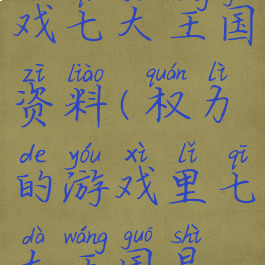 戏七大王国
zī liào quán lì
资料(权力
de yóu xì lǐ qī
的游戏里七
dà wáng guó shì
大王国是